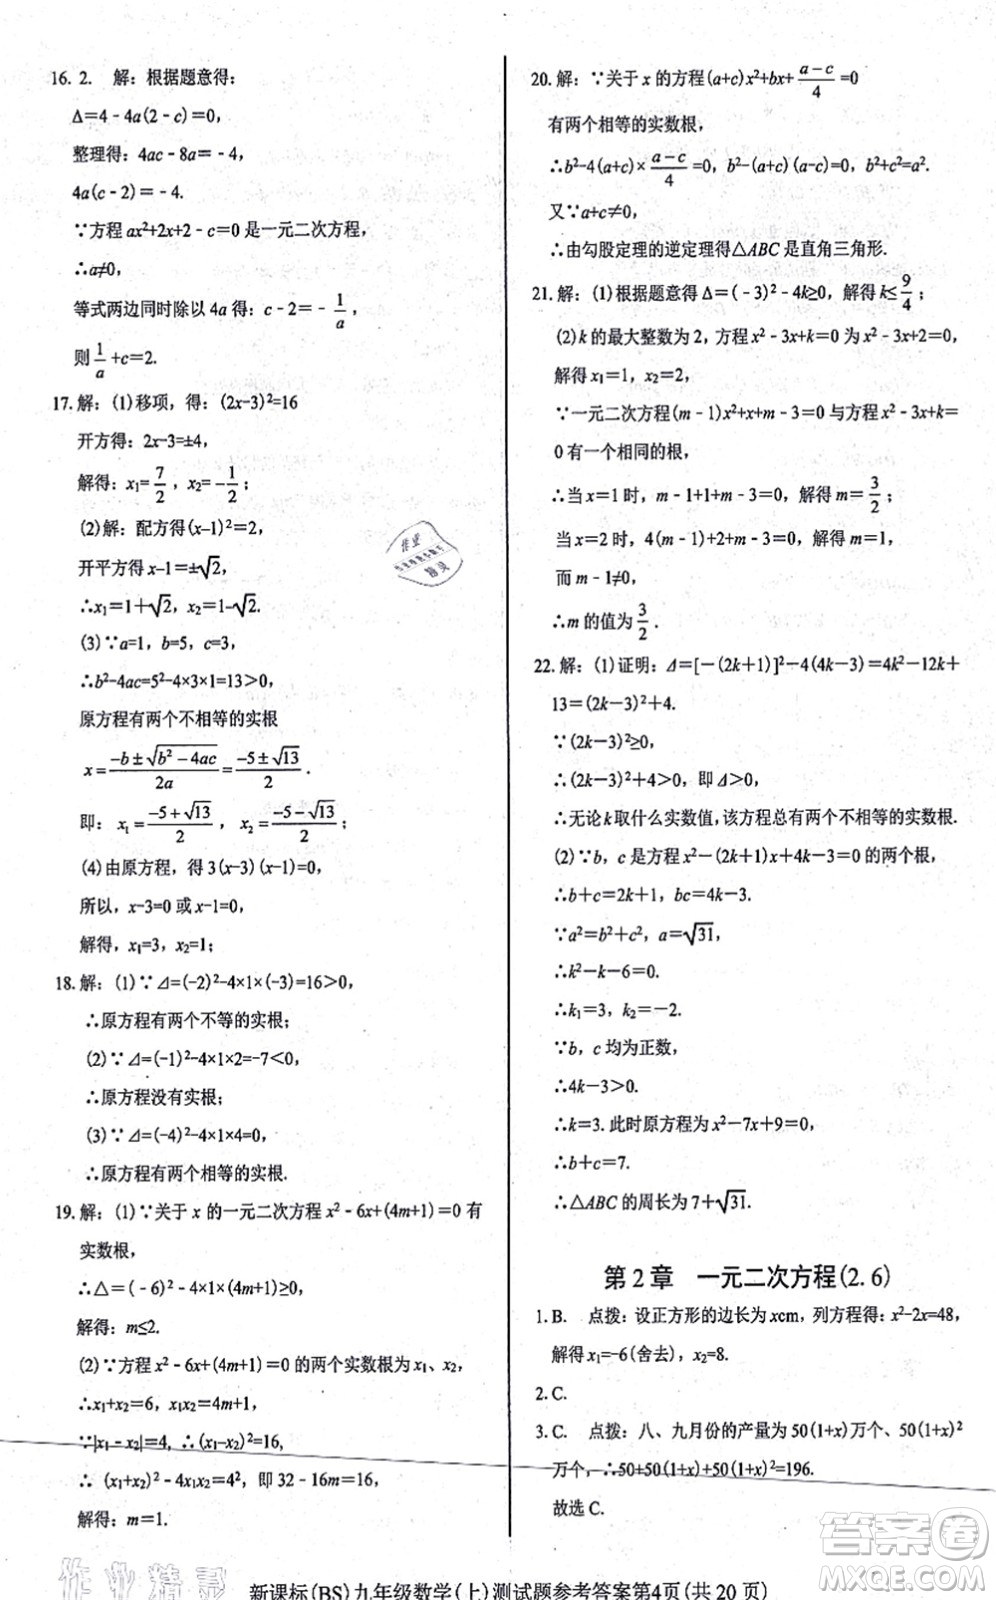 16. 2.　解：根据题意得：
Δ=4﹣4a(2﹣c)=0,
整理得：4ac﹣8a=﹣4,
4a(c﹣2)=﹣4.
∵方程 ax²+2x+2﹣c=0 是一元二次方程,
∴a≠0,
等式两边同时除以 4a 得：c﹣2=﹣1/a,
则 1/a +c=2.
17. 解：(1)移项，得：(2x-3)²=16
开方得：2x-3=±4,
解得：x₁=7/2，x₂=﹣1/2；
(2)解：配方得(x–1)²=2,
开平方得 x–1=±√2,
∴x₁=1+√2, x₂=1-√2.
(3)∵a=1，b=5，c=3,
∴b²-4ac=5²-4×3×1=13＞0,
原方程有两个不相等的实根
x=(-b±√(b²-4ac))/2a=(-5±√13)/2.
即：x₁=(-5+√13)/2，x₂=(-5-√13)/2；
(4)由原方程，得 3(x-3)(x-1)=0,
所以, x-3=0 或 x-1=0,
解得, x₁=3, x₂=1；
18. 解：(1)∵Δ=(-2)²-4×1×(-3)=16＞0,
∴原方程有两个不等的实根；
(2)∵Δ=(-1)²-4×1×2=-7＜0,
∴原方程没有实根；
(3)∵Δ=(-4)²-4×1×4=0,
∴原方程有两个相等的实根.
19. 解：(1)∵关于 x 的一元二次方程 x²﹣6x+(4m+1)=0 有
实数根,
∴△=(﹣6)²﹣4×1×(4m+1)≥0,
解得：m≤2.
(2)∵方程 x²﹣6x+(4m+1)=0 的两个实数根为 x₁、x₂,
∴x₁+x₂=6, x₁x₂=4m+1,
∵|x₁﹣x₂|=4, ∴(x₁-x₂)²=16,
∴ (x₁+x₂)²﹣4x₁x₂=4²，即 32﹣16m=16,
解得：m=1.
20. 解：∵关于 x 的方程(a+c)x²+bx+(a-c)/4=0
有两个相等的实数根,
∴b²-4(a+c)×(a-c)/4=0, b²-(a+c)(a-c)=0, b²+c²=a².
又∵a+c≠0,
∴由勾股定理的逆定理得△ABC 是直角三角形.
21. 解：(1)根据题意得 Δ=(﹣3)²﹣4k≥0，解得 k≤9/4；
(2)k 的最大整数为 2，方程 x²﹣3x+k=0 为 x²﹣3x+2=0,
解得 x₁=1，x₂=2,
∵一元二次方程(m﹣1)x²+x+m﹣3=0 与方程 x²﹣3x+k=
0 有一个相同的根,
∴当 x=1 时，m﹣1+1+m﹣3=0，解得 m=3/2；
当 x=2 时，4(m﹣1)+2+m﹣3=0，解得 m=1,
而 m﹣1≠0,
∴m 的值为 3/2.
22. 解：(1)证明：Δ=[-(2k+1)]²-4(4k-3)=4k²-12k+
13=(2k-3)²+4.
∵(2k-3)²≥0,
∴(2k-3)²+4＞0，即 Δ＞0,
∴无论 k 取什么实数值，该方程总有两个不相等的实数根.
(2)∵b，c 是方程 x²-(2k+1)x+4k-3=0 的两个根,
∴b+c=2k+1，bc=4k-3.
∵a²=b²+c²，a=√31,
∴k²-k-6=0.
∴k₁=3，k₂=-2.
∵b，c 均为正数,
∴4k-3＞0.
∴k=3. 此时原方程为 x²-7x+9=0,
∴b+c=7.
∴△ABC 的周长为 7+√31.
第 2 章　一元二次方程(2.6)
1. B.　点拨：设正方形的边长为 xcm，列方程得：x²-2x=48,
解得 x₁=-6(舍去)，x₂=8.
2. C.
3. C.　点拨：八、九月份的产量为 50(1+x)万个、50(1+x)²
万个, ∴50+50(1+x)+50(1+x)²=196.
故选 C.
新课标(BS)九年级数学(上)测试题参考答案第4页(共 20 页)
作业精灵
答案卷
作业
精灵